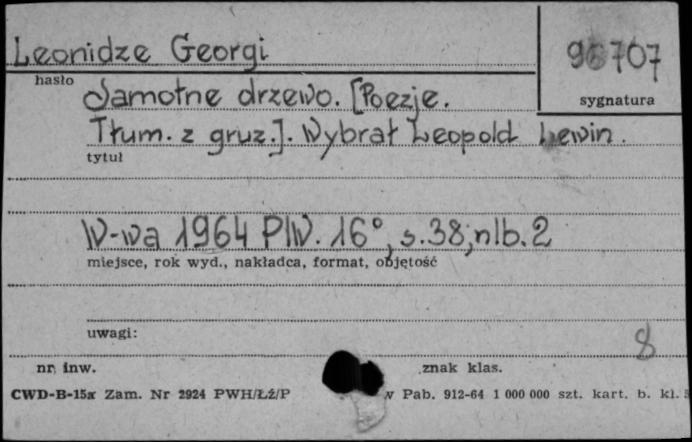 Leonidze Georgi
96707
hasło
sygnatura
Samotne drzewo. [Poezje.
Tłum. z gruz.]. Wybrał Leopold Lewin.
tytuł
W-wa 1964 PIW. 16°, s.38, nlb.2
miejsce, rok wyd., nakładca, format, objętość
uwagi:
8
nr. inw.
znak klas.
CWD-B-15x Zam. Nr 2924 PWH/Łź/P
w Pab. 912-64 1 000 000 szt. kart. b. kl.